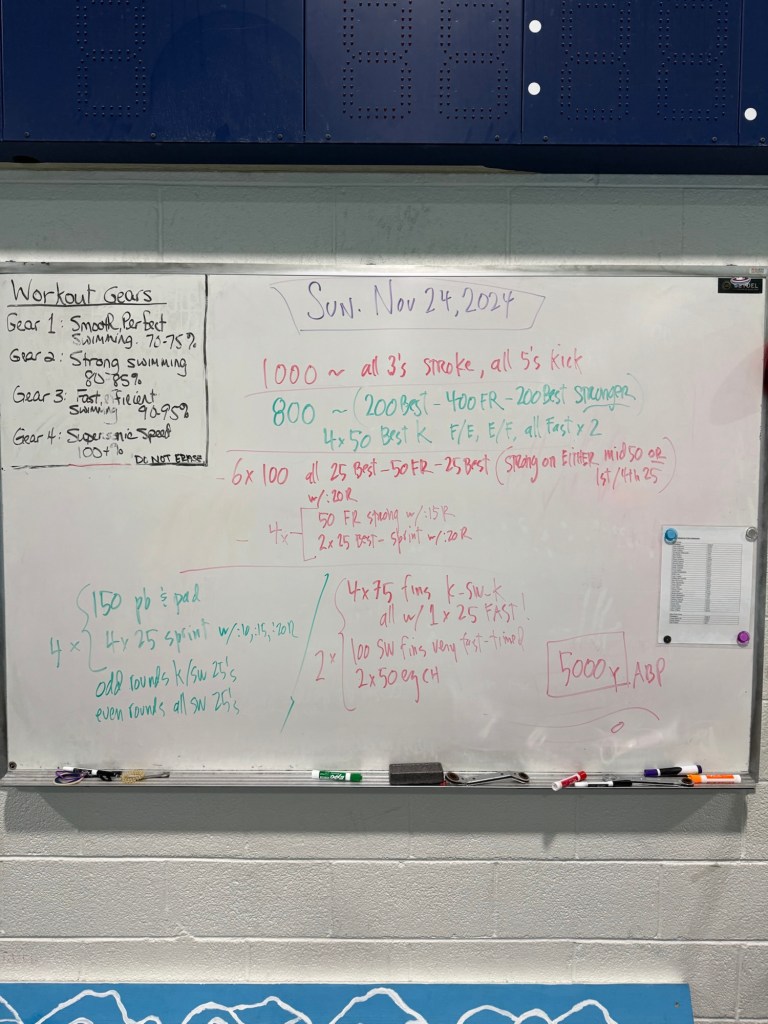 Workout Gears
Gear 1: Smooth, Perfect
Swimming. 70-75%
Gear 2: Strong swimming
80-85%
Gear 3: Fast, Efficient
Swimming 90-95%
Gear 4: Supersonic Speed
100+%
DO NOT ERASE
Sun. Nov 24, 2024
1000 ~ all 3's stroke, all 5's kick
800 ~ (200 Best - 400 FR - 200 Best Stronger
4 x 50 Best K F/E, E/F, all Fast x 2
6 x 100 all 25 Best - 50 FR - 25 Best (strong on EITHER mid 50 OR
1st/4th 25)
w/:20R
4x 50 FR strong w/:15R
2x 25 Best - sprint w/:20R
4 x 150 pb & pad
4 x 25 sprint w/:10,:15,:20R
odd rounds k/sw 25's
even rounds all sw 25's
2 x 4 x 75 fins k-sw-k
all w/ 1 x 25 FAST!
100 sw fins very fast-timed
2 x 50 ez CH
5000y ABP